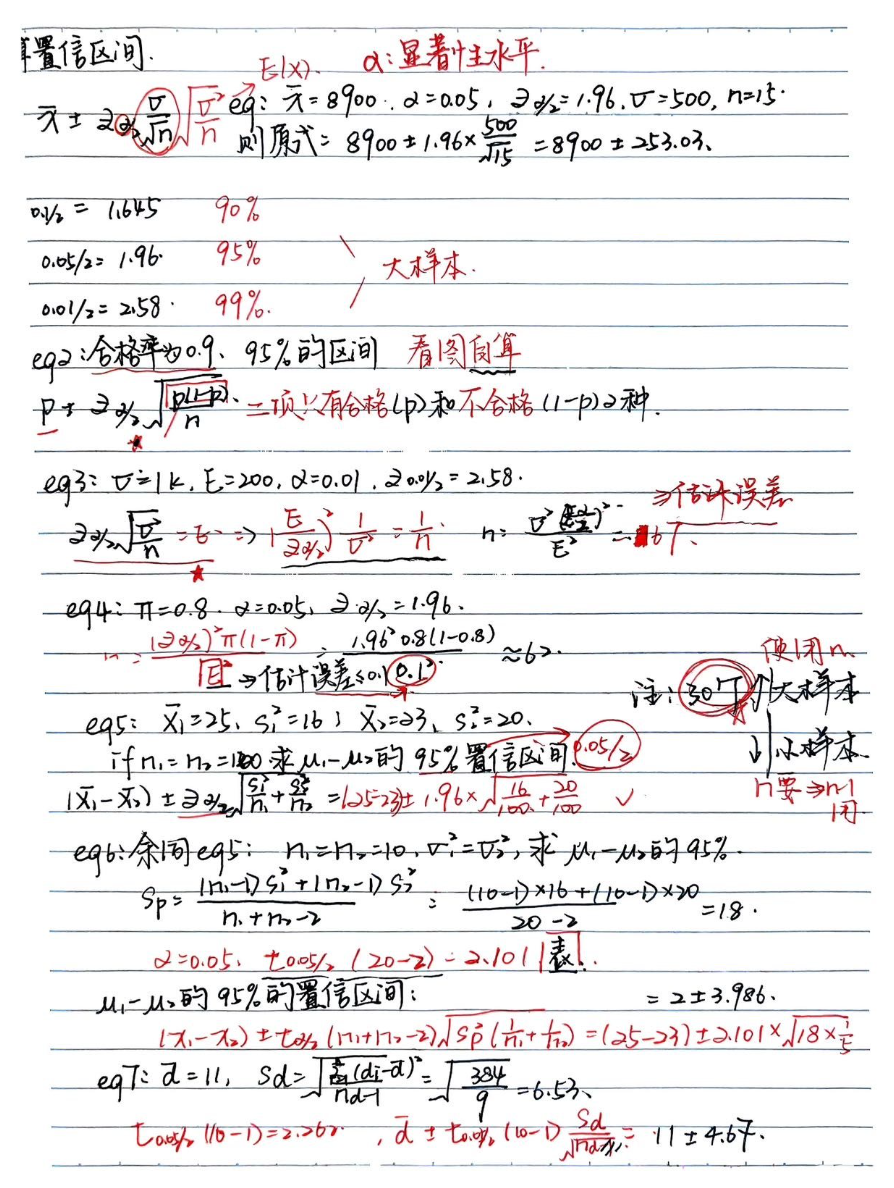 算置信区间.
E(x). α:显著性水平.
x̄ ± z α/2 σ/√n √σ²/n eg: x̄=8900. α=0.05, z α/2=1.96, σ=500, n=15.
则原式= 8900±1.96×500/√15 =8900±253.03、
0.1/2 = 1.645 90%
0.05/2= 1.96. 95%
大样本.
0.01/2=2.58. 99%.
eg2:合格率为0.9、95%的区间 看图自算
p ± z α/2 √p(1-p)/n. 二项只有合格(p)和不合格(1-p)2种.
eg3: σ²=1k, E=200, α=0.01, z 0.01/2=2.58.
⇒估计误差
z α/2 √σ²/n =E ⇒ (E/z α/2)² 1/σ² = 1/n. n= σ²(z α/2)²/E²
eg4: π=0.8. α=0.05, z α/2=1.96.
n= (z α/2)²π(1-π)/E² = 1.96²0.8(1-0.8)/0.1² ≈62.
⇒估计误差≤0.1
使用n.
注: 30个 ↑大样本
↓小样本.
n要⇒n-1
用.
eg5: x̄₁=25, s₁²=16; x̄₂=23, s₂²=20.
if n₁=n₂=100 求μ₁-μ₂的95%置信区间. 0.05/2
(x̄₁-x̄₂) ± z α/2 √s₁²/n₁+s₂²/n₂ =(25-23)±1.96×√16/100+20/100 ✓
eg6:余同eg5: n₁=n₂=10, σ₁²=σ₂², 求μ₁-μ₂的95%.
Sp= (n₁-1)s₁²+(n₂-1)s₂²/n₁+n₂-2 = (10-1)×16+(10-1)×20/20-2 =18.
α=0.05, t 0.05/2 (20-2)=2.101 表.
μ₁-μ₂的95%的置信区间: =2±3.986.
(x̄₁-x̄₂) ± t α/2 (n₁+n₂-2)√Sp²(1/n₁+1/n₂) =(25-23)±2.101×√18×1/5
eg7: d̄=11, Sd=√Σ(di-d̄)²/nd-1=√384/9=6.53、
t 0.05/2 (10-1)=2.262. , d̄ ± t 0.05/2 (10-1) Sd/√nd = 11±4.67.